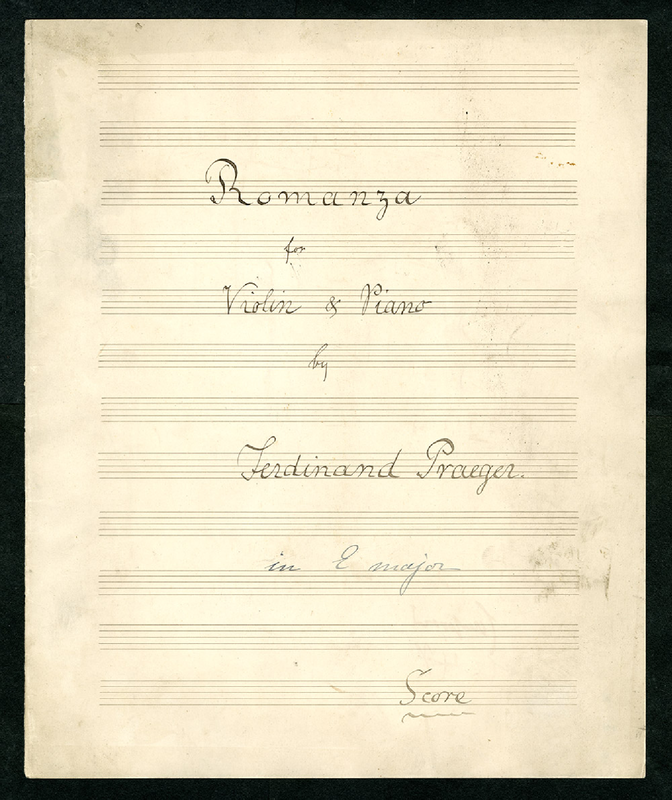 Romanza
for
Violin & Piano
by
Ferdinand Praeger.
in E major
Score